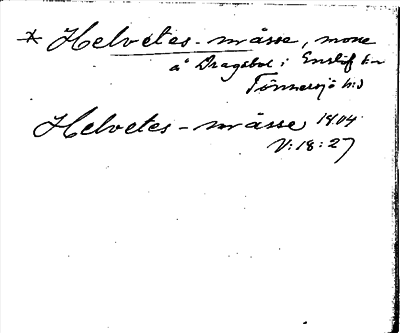 * Helvetes-måsse, mosse
å Dragabol i Enslöf sn
Tönnersjö hd
Helvetes-måsse 1804
V:18:27